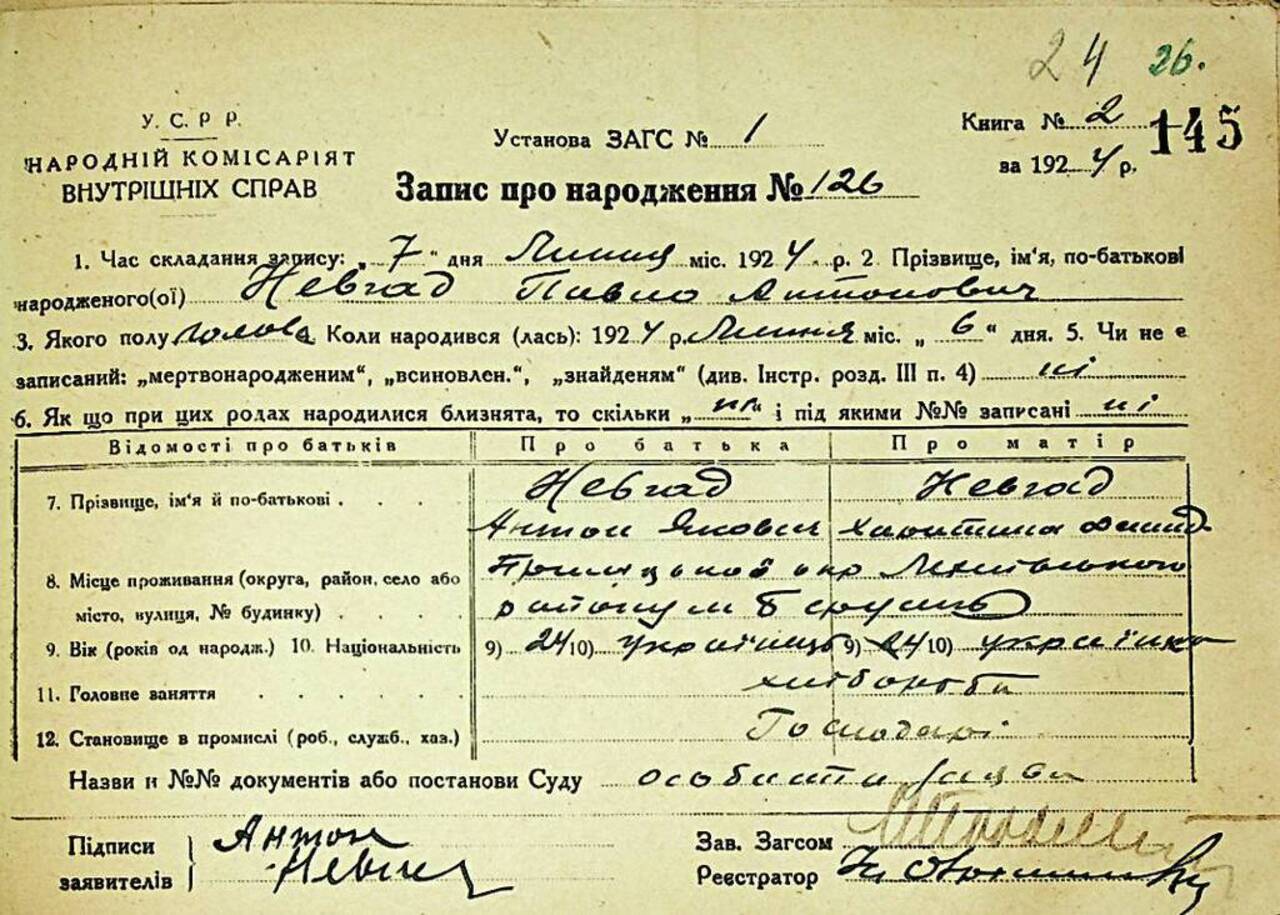 24 26.
У. С. Р Р.
НАРОДНІЙ КОМІСАРІЯТ
ВНУТРІШНІХ СПРАВ
Установа ЗАГС № 1
Книга № 2 145
за 1924 р.
Запис про народження № 126
1. Час складання запису: „ 7 " дня Липня міс. 1924 р. 2 Прізвище, ім'я, по-батькові
народженого(ої) Невгад Павло Антонович
3. Якого полу чолов. Коли народився (лась): 1924 р. Липня міс. „ 6 " дня. 5. Чи не є
записаний: „мертвонародженим", „всиновлен.", „знайденям" (див. Інстр. розд. III п. 4) ні
6. Як що при цих родах народилися близнята, то скільки „ " і під якими №№ записані ні
Відомості про батьків Про батька Про матір
7. Прізвище, ім'я й по-батькові . . . . Невгад Невгад
Антон Якович Харитина
8. Місце проживання (округа, район, село або окр
місто, вулиця, № будинку) . . . . району
9. Вік (років од народж.) 10. Національність 9) 24 10) українець 9) 24 10) українка
11. Головне заняття . . . . . хлібороби
12. Становище в промислі (роб., служб., хаз.) Господарі
Назви и №№ документів або постанови Суду особисти
Підписи Антон
заявителів
Зав. Загсом
Реєстратор